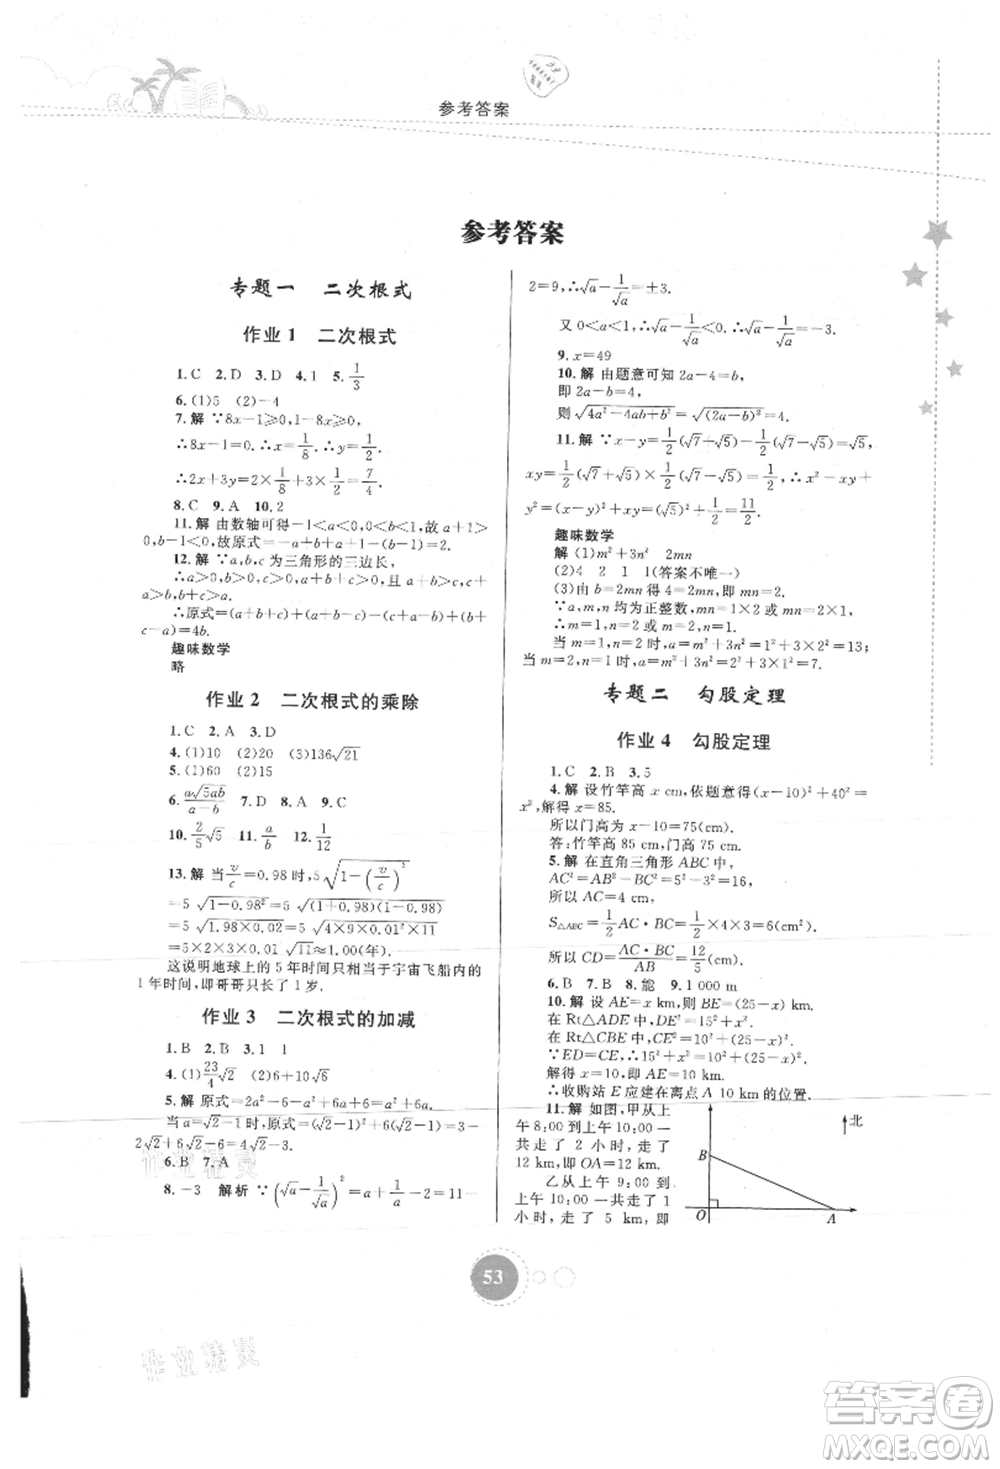 参考答案
参考答案
专题一 二次根式
作业1 二次根式
1. C 2. D 3. D 4. 1 5. 1/3
6. (1)5 (2)-4
7. 解 ∵8x-1⩾0,1-8x⩾0,
∴8x-1=0,∴x=1/8,∴y=1/2,
∴2x+3y=2×1/8+3×1/2=7/4.
8. C 9. A 10. 2
11. 解 由数轴可得-1<a<0,0<b<1,故a+1>
0,b-1<0,故原式=a+1-a-b+1-b=2-2b.
12. 解 ∵a,b,c为三角形的三边长,
∴a>0,b>0,c>0,且a+b>c,b+c>a,
a+c>b,b+c>a.
∴原式=(a+b+c)+(a+b-c)+(b+c-a)+(b+
c-a)=4b.
趣味数学
略
作业2 二次根式的乘除
1. C 2. A 3. D
4. (1)10 (2)20 (3)136√21
5. (1)60 (2)15
6. a√5ab/(a-b) 7. D 8. A 9. C
10. 2/5√5 11. a/b 12. 1/12
13. 解 当v/c=0.98时,5√(1-(v/c)²)
=5√(1-0.98²)=5√((1+0.98)(1-0.98))
=5√(1.98×0.02)=5√(4×9×0.02×11)
=5×2×3×0.01×√11≈1.00(年).
这说明地球上的5年时间只相当于宇宙飞船内的
1年时间,即哥哥只长了1岁.
作业3 二次根式的加减
1. B 2. B 3. 1 1
4. (1)23/4√2 (2)6+10√5
5. 解 原式=2a²-6-2a²+6a=6a-6.
当a=√2-1时,原式=(√2-1)²+6(√2-1)=3-
2√2+6√2-6=4√2-3.
6. B 7. A
8. -3 解析 ∵(√a-1/√a)²=a+1/a-2=11-
2=9,∴√a-1/√a=±3.
又0<a<1,∴√a-1/√a<0,∴√a-1/√a=-3.
9. x=49
10. 解 由题意可知2a-4=b,
即2a-b=4,
则√(4a²-4ab+b²)=√((2a-b)²)=4.
11. 解 ∵x-y=1/2(√7+√5)-1/2(√7-√5)=√5,
xy=1/2(√7+√5)×1/2(√7-√5)=1/2,∴x²-xy+
y²=(x-y)²+xy=(√5)²+1/2=11/2.
趣味数学
解 (1)m²+3n² 2mn
(2)4 2 1 1(答案不唯一)
(3)由b=2mn得4=2mn,即mn=2.
∵a,m,n均为正整数,∴mn=1×2或mn=2×1,
∴m=1,n=2或m=2,n=1.
当m=1,n=2时,a=m²+3n²=1²+3×2²=13;
当m=2,n=1时,a=m²+3n²=2²+3×1²=7.
专题二 勾股定理
作业4 勾股定理
1. C 2. B 3. 5
4. 解 设竹竿高x cm,依题意得(x-10)²+40²=
x²,解得x=85.
所以门高为x-10=75(cm).
答:竹竿高85 cm,门高75 cm.
5. 解 在直角三角形ABC中,
AC²=AB²-BC²=5²-3²=16,
所以AC=4 cm.
S△ABC=1/2AC·BC=1/2×4×3=6(cm²).
所以CD=AC·BC/AB=12/5(cm).
6. B 7. B 8. 能 9. 1 000 m
10. 解 设AE=x km,则BE=(25-x)km,
在Rt△ADE中,DE²=15²+x²,
在Rt△CBE中,CE²=10²+(25-x)²,
∵ED=CE,∴15²+x²=10²+(25-x)²,
解得x=10,即AE=10 km.
∴收购站E应建在离点A 10 km的位置.
11. 解 如图,甲从上
午8:00到上午10:00一
共走了2小时,走了
12 km,即OA=12 km.
乙从上午9:00到
上午10:00一共走了1
小时,走了5 km,即
北
B
O
A
53
作业精灵
作业精灵
答案卷
MXQE.COM